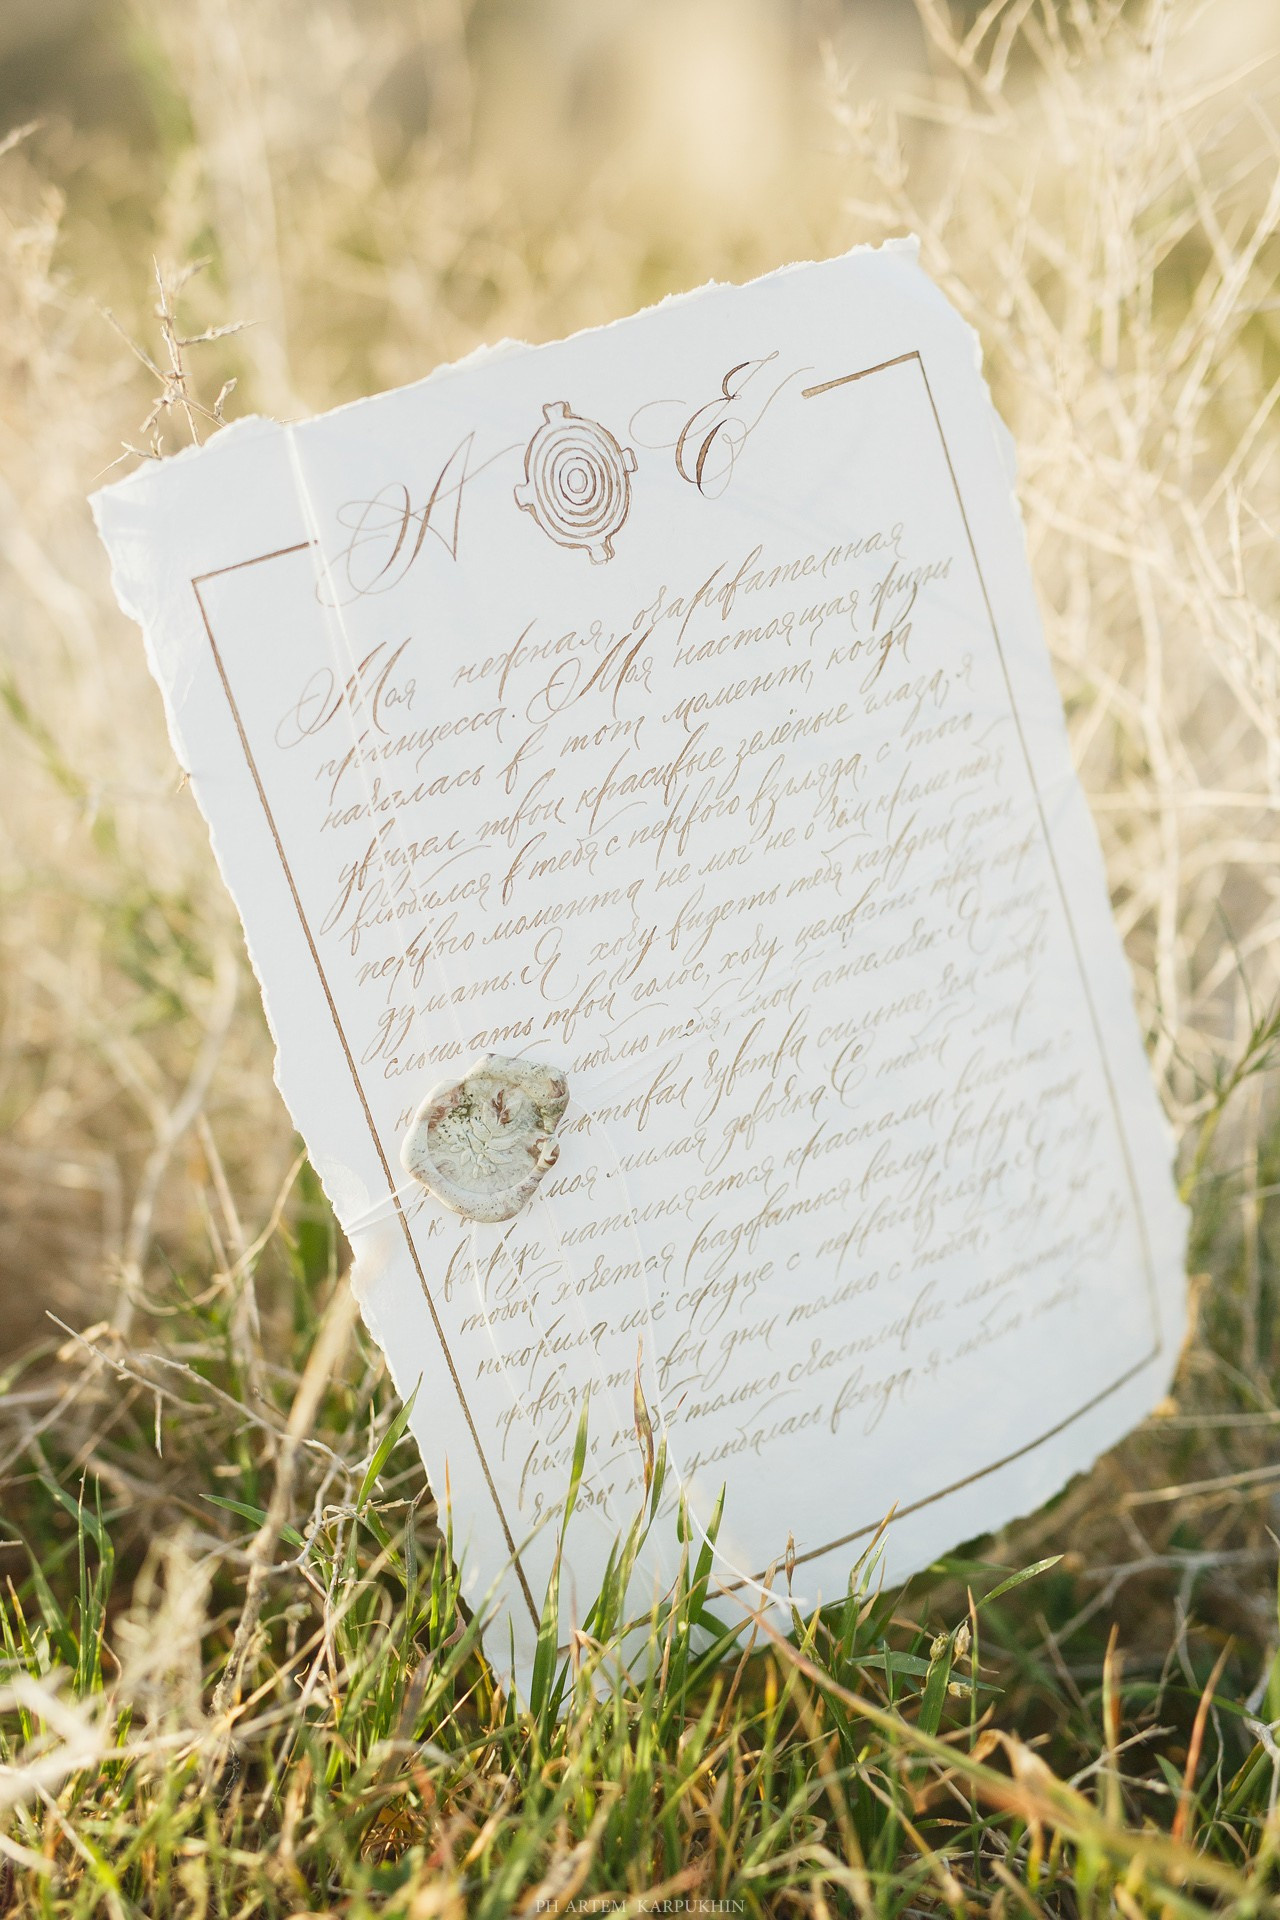 А Е
Моя нежная, очаровательная
принцесса. Моя настоящая жизнь
началась в тот момент, когда
увидел твои красивые зелёные глаза, я
влюбился в тебя с первого взгляда, с того
первого момента не мог не о чём кроме тебя
думать. Я хочу видеть тебя каждый день
слышать твой голос, хочу целовать твои
люблю тебя, мой ангелочек. Я
чувства сильнее, чем любовь
к моя милая девочка. С тобой мир
вокруг наполняется красками, вместе с
тобой хочется радоваться всему вокруг, ты
покорила моё сердце с первого взгляда. Я хочу
проводить свои дни только с тобой, хочу
рить тебе только счастливые мгновения, хочу
чтобы ты улыбалась всегда, я люблю тебя
PH ARTEM KARPUKHIN